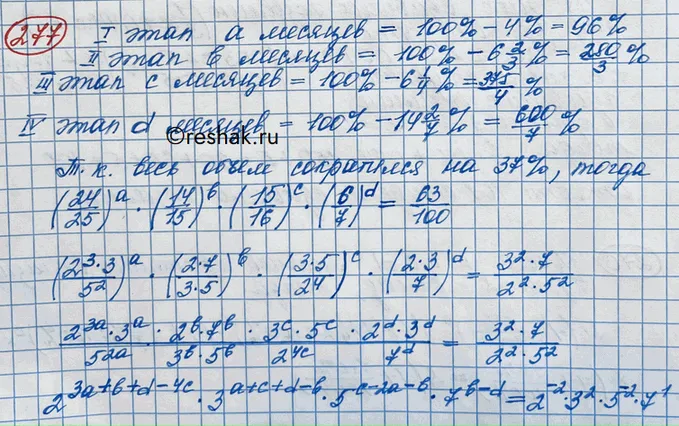 277 I этап a месяцев = 100% - 4% = 96%
II этап в месяцев = 100% - 6 2/3 % = 280/3 %
III этап c месяцев = 100% - 6 1/4 % = 375/4 %
IV этап d месяцев = 100% - 14 2/7 % = 600/7 %
©reshak.ru
Т.к. весь объем сократился на 37%, тогда
(24/25)^a · (14/15)^в · (15/16)^c · (6/7)^d = 63/100
(2^3·3/5^2)^a · (2·7/3·5)^в · (3·5/2^4)^c · (2·3/7)^d = 3^2·7/2^2·5^2
2^3a·3^a/5^2a · 2^в·7^в/3^в·5^в · 3^c·5^c/2^4c · 2^d·3^d/7^d = 3^2·7/2^2·5^2
2^3a+в+d-4c · 3^a+c+d-в · 5^c-2a-в · 7^в-d = 2^-2·3^2·5^-2·7^1